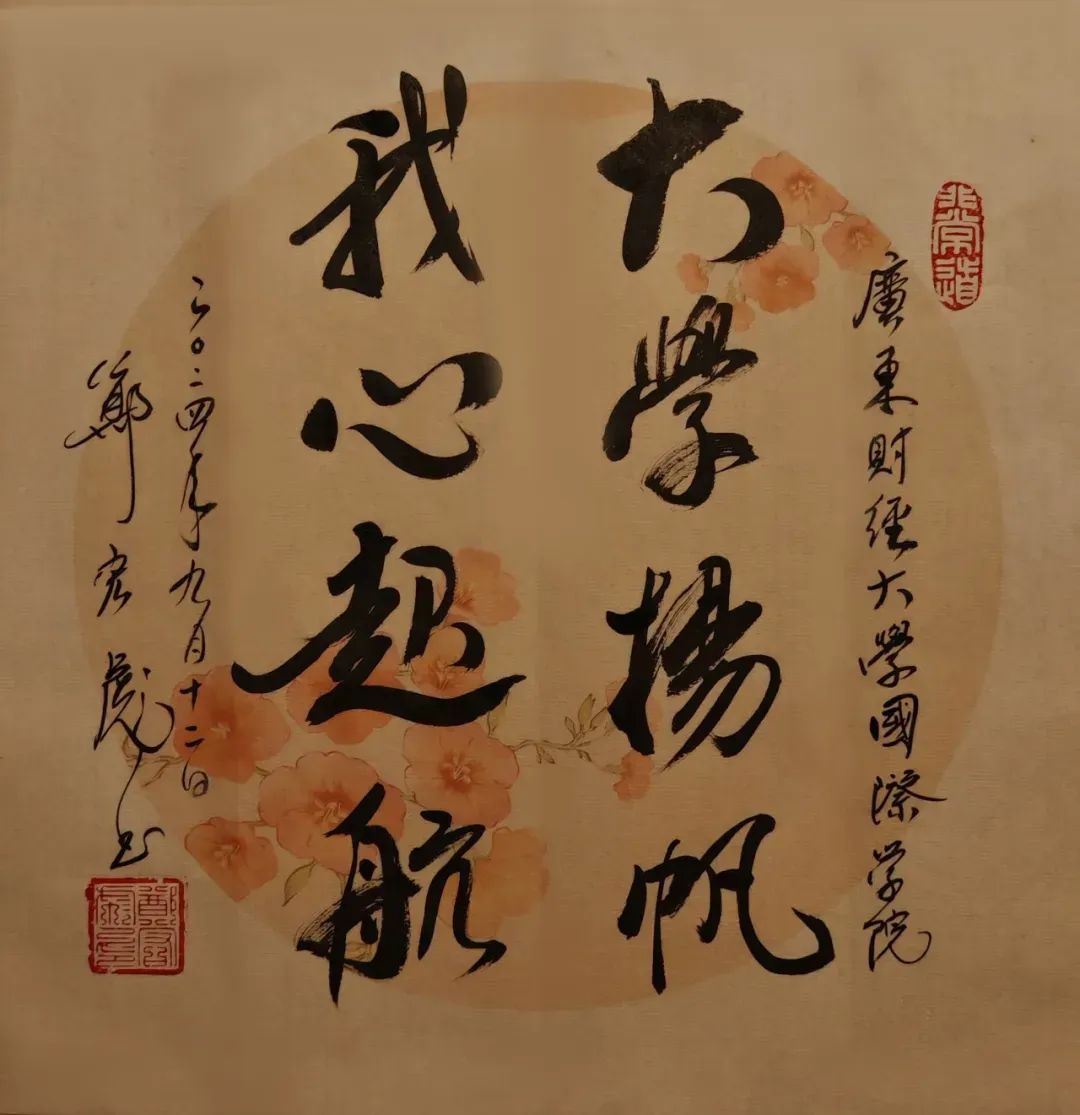 非常道
廣東財經大學國際学院
大學揚帆
我心起航
二〇二四年九月十二日
鄭宏彪书